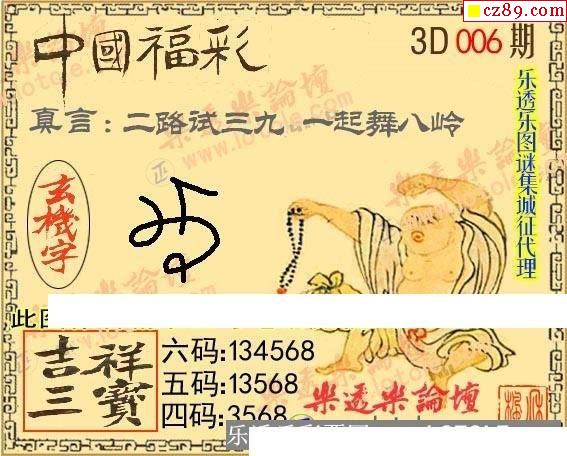 cz89.com
中國福彩
3D 006 期
真言：二路试三九 一起舞八岭
乐透乐图谜集城征代理
玄機字
此图
吉祥三寶
六码:134568
五码:13568
四码:3568
樂透樂論壇